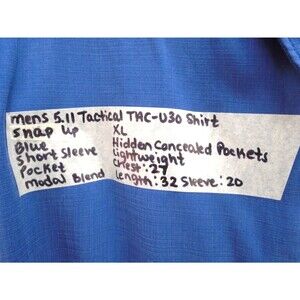 mens 5.11 Tactical TAC-U30 Shirt
Snap Up XL
Blue Hidden Concealed Pockets
Short Sleeve Lightweight
Pocket Chest: 27
Modal Blend Length: 32 Sleeve: 20